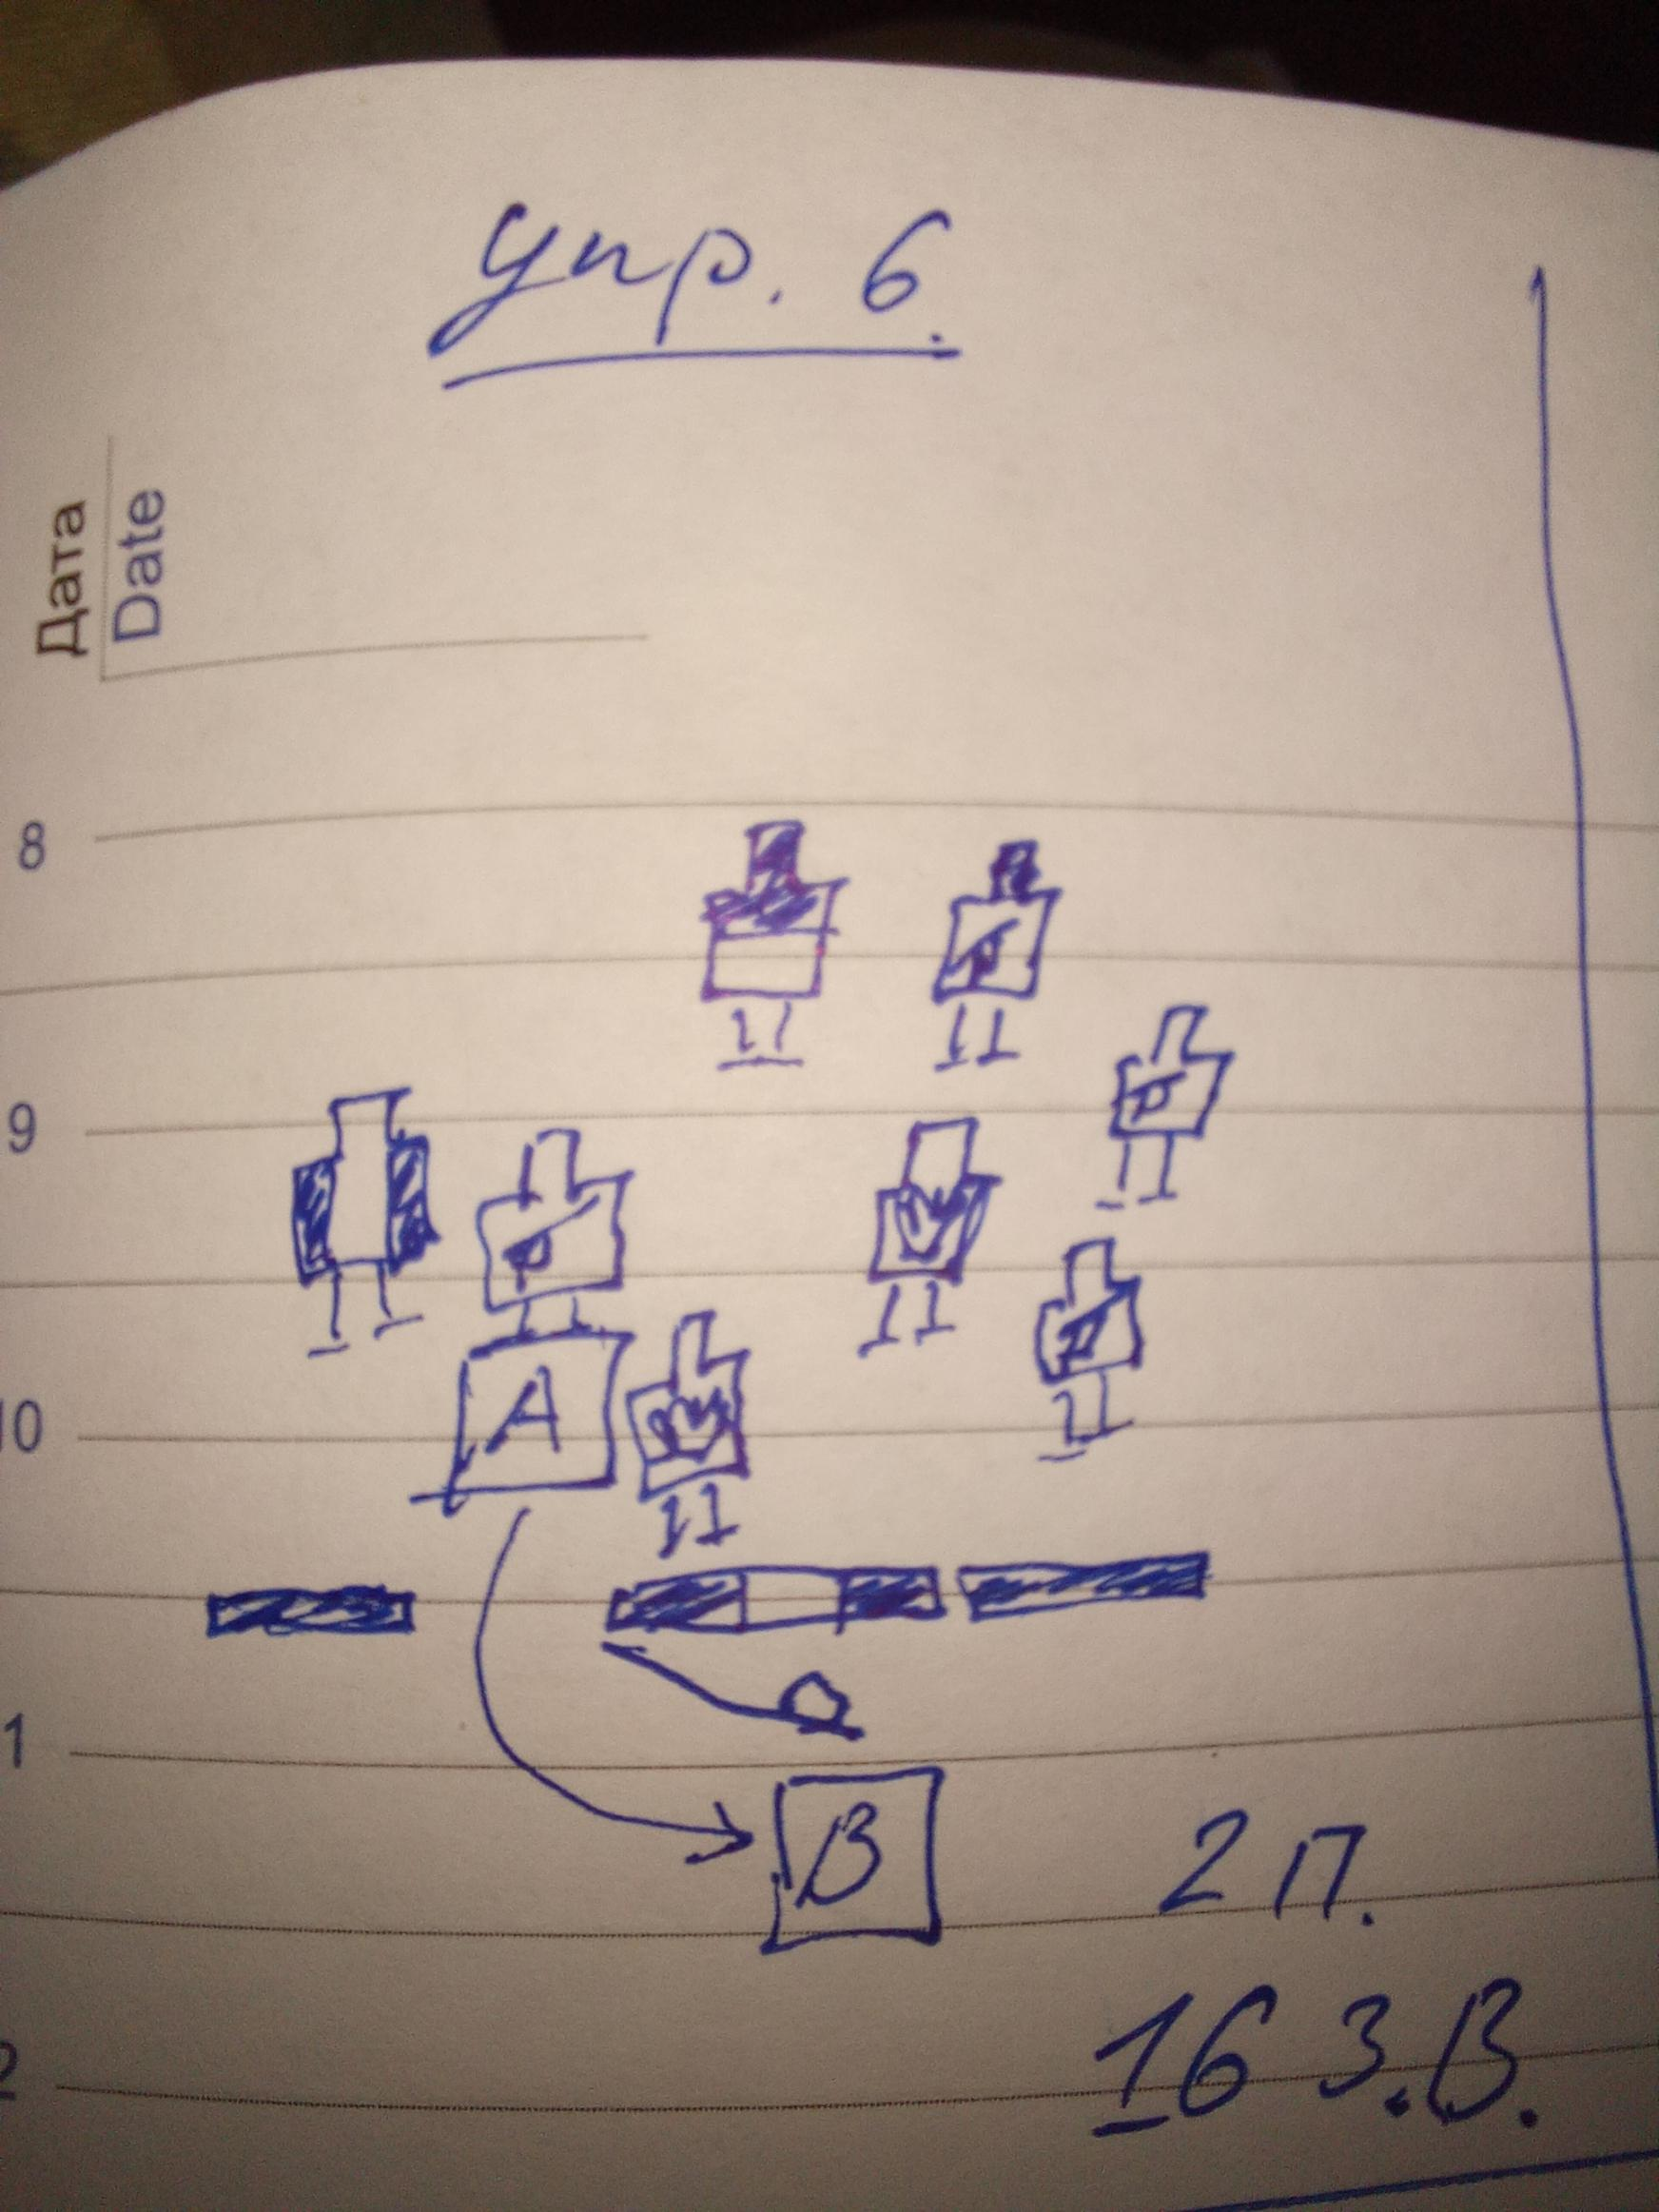 упр. 6.
Дата
Date
8
9
10
A
1
B
2 п.
2
16 з.в.